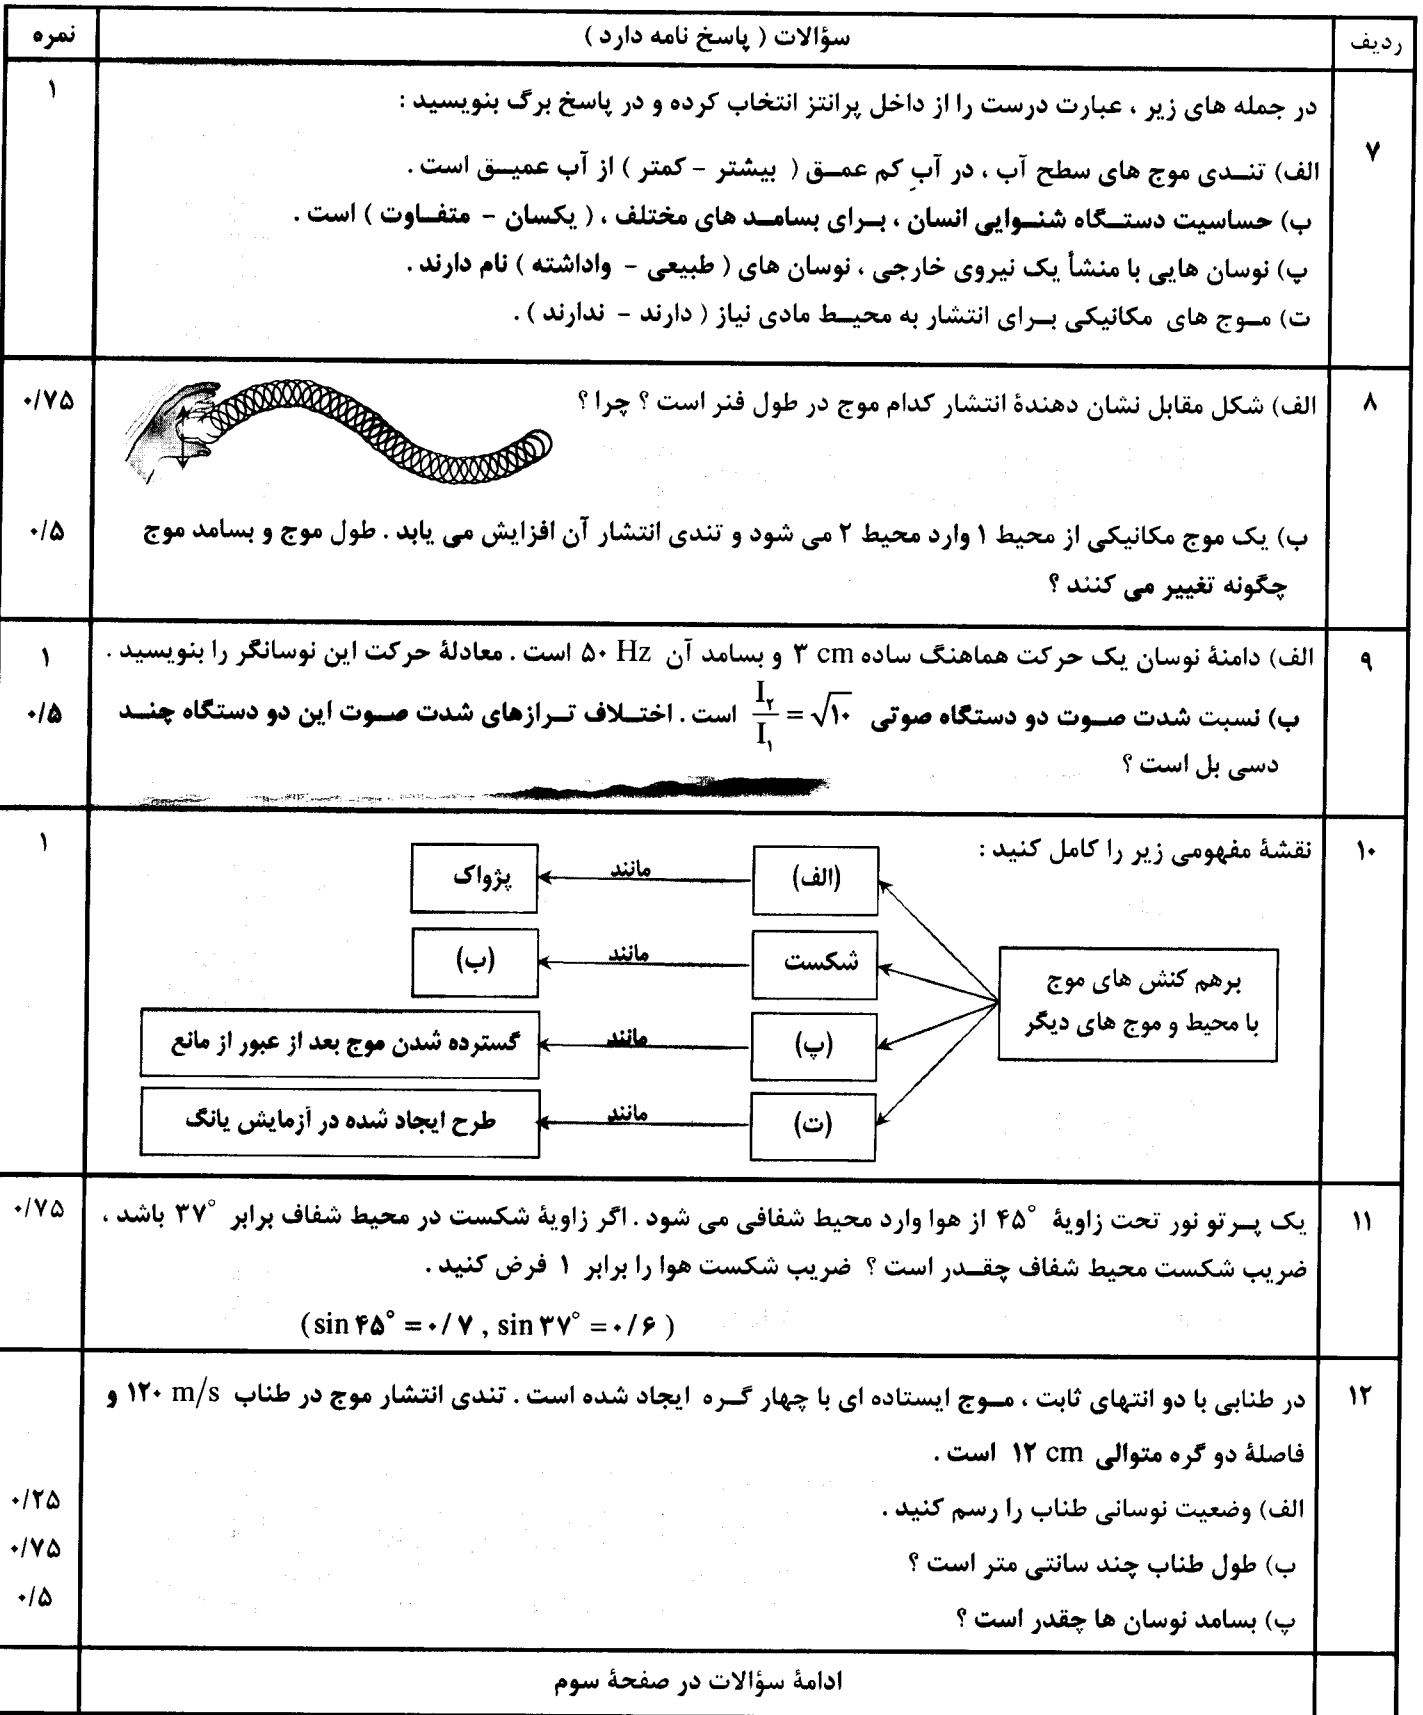 ردیف سؤالات ( پاسخ نامه دارد ) نمره
۷ در جمله های زیر ، عبارت درست را از داخل پرانتز انتخاب کرده و در پاسخ برگ بنویسید : ۱
الف) تنــدی موج های سطح آب ، در آبِ کم عمــق ( بیشتر - کمتر ) از آب عمیــق است .
ب) حساسیت دستــگاه شنــوایی انسان ، بــرای بسامــد های مختلف ، ( یکسان - متفــاوت ) است .
پ) نوسان هایی با منشأ یک نیروی خارجی ، نوسان های ( طبیعی - واداشته ) نام دارند .
ت) مــوج های مکانیکی بــرای انتشار به محیــط مادی نیاز ( دارند - ندارند ) .
۸ الف) شکل مقابل نشان دهندۀ انتشار کدام موج در طول فنر است ؟ چرا ؟ ۰/۷۵
ب) یک موج مکانیکی از محیط ۱ وارد محیط ۲ می شود و تندی انتشار آن افزایش می یابد . طول موج و بسامد موج ۰/۵
چگونه تغییر می کنند ؟
۹ الف) دامنۀ نوسان یک حرکت هماهنگ ساده ۳ cm و بسامد آن ۵۰ Hz است . معادلۀ حرکت این نوسانگر را بنویسید . ۱
ب) نسبت شدت صــوت دو دستگاه صوتی I۲/I۱ = √۱۰ است . اختــلاف تــرازهای شدت صــوت این دو دستگاه چنــد ۰/۵
دسی بل است ؟
۱۰ نقشۀ مفهومی زیر را کامل کنید : ۱
برهم کنش های موج
با محیط و موج های دیگر
(الف) مانند پژواک
شکست مانند (ب)
(پ) مانند گسترده شدن موج بعد از عبور از مانع
(ت) مانند طرح ایجاد شده در آزمایش یانگ
۱۱ یک پــرتو نور تحت زاویۀ ۴۵° از هوا وارد محیط شفافی می شود . اگر زاویۀ شکست در محیط شفاف برابر ۳۷° باشد ، ۰/۷۵
ضریب شکست محیط شفاف چقــدر است ؟ ضریب شکست هوا را برابر ۱ فرض کنید .
(sin ۴۵° = ۰/۷ , sin ۳۷° = ۰/۶ )
۱۲ در طنابی با دو انتهای ثابت ، مــوج ایستاده ای با چهار گــره ایجاد شده است . تندی انتشار موج در طناب ۱۲۰ m/s و
فاصلۀ دو گره متوالی ۱۲ cm است .
الف) وضعیت نوسانی طناب را رسم کنید . ۰/۲۵
ب) طول طناب چند سانتی متر است ؟ ۰/۷۵
پ) بسامد نوسان ها چقدر است ؟ ۰/۵
ادامۀ سؤالات در صفحۀ سوم